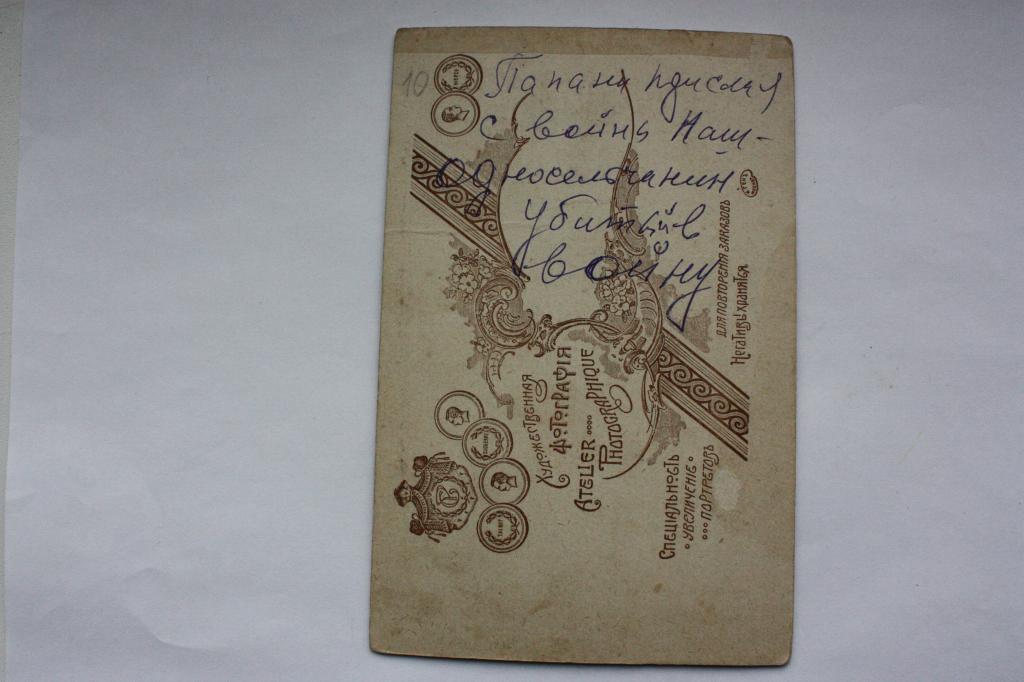 10
Папани прислал
с войны Наш-
односельчанин
Убитый в
войну
Художественная
Фотографія
Atelier
Photographique
Спеціальность
увеличеніе
портретовъ
Негативы хранятся
для повторенія заказовъ